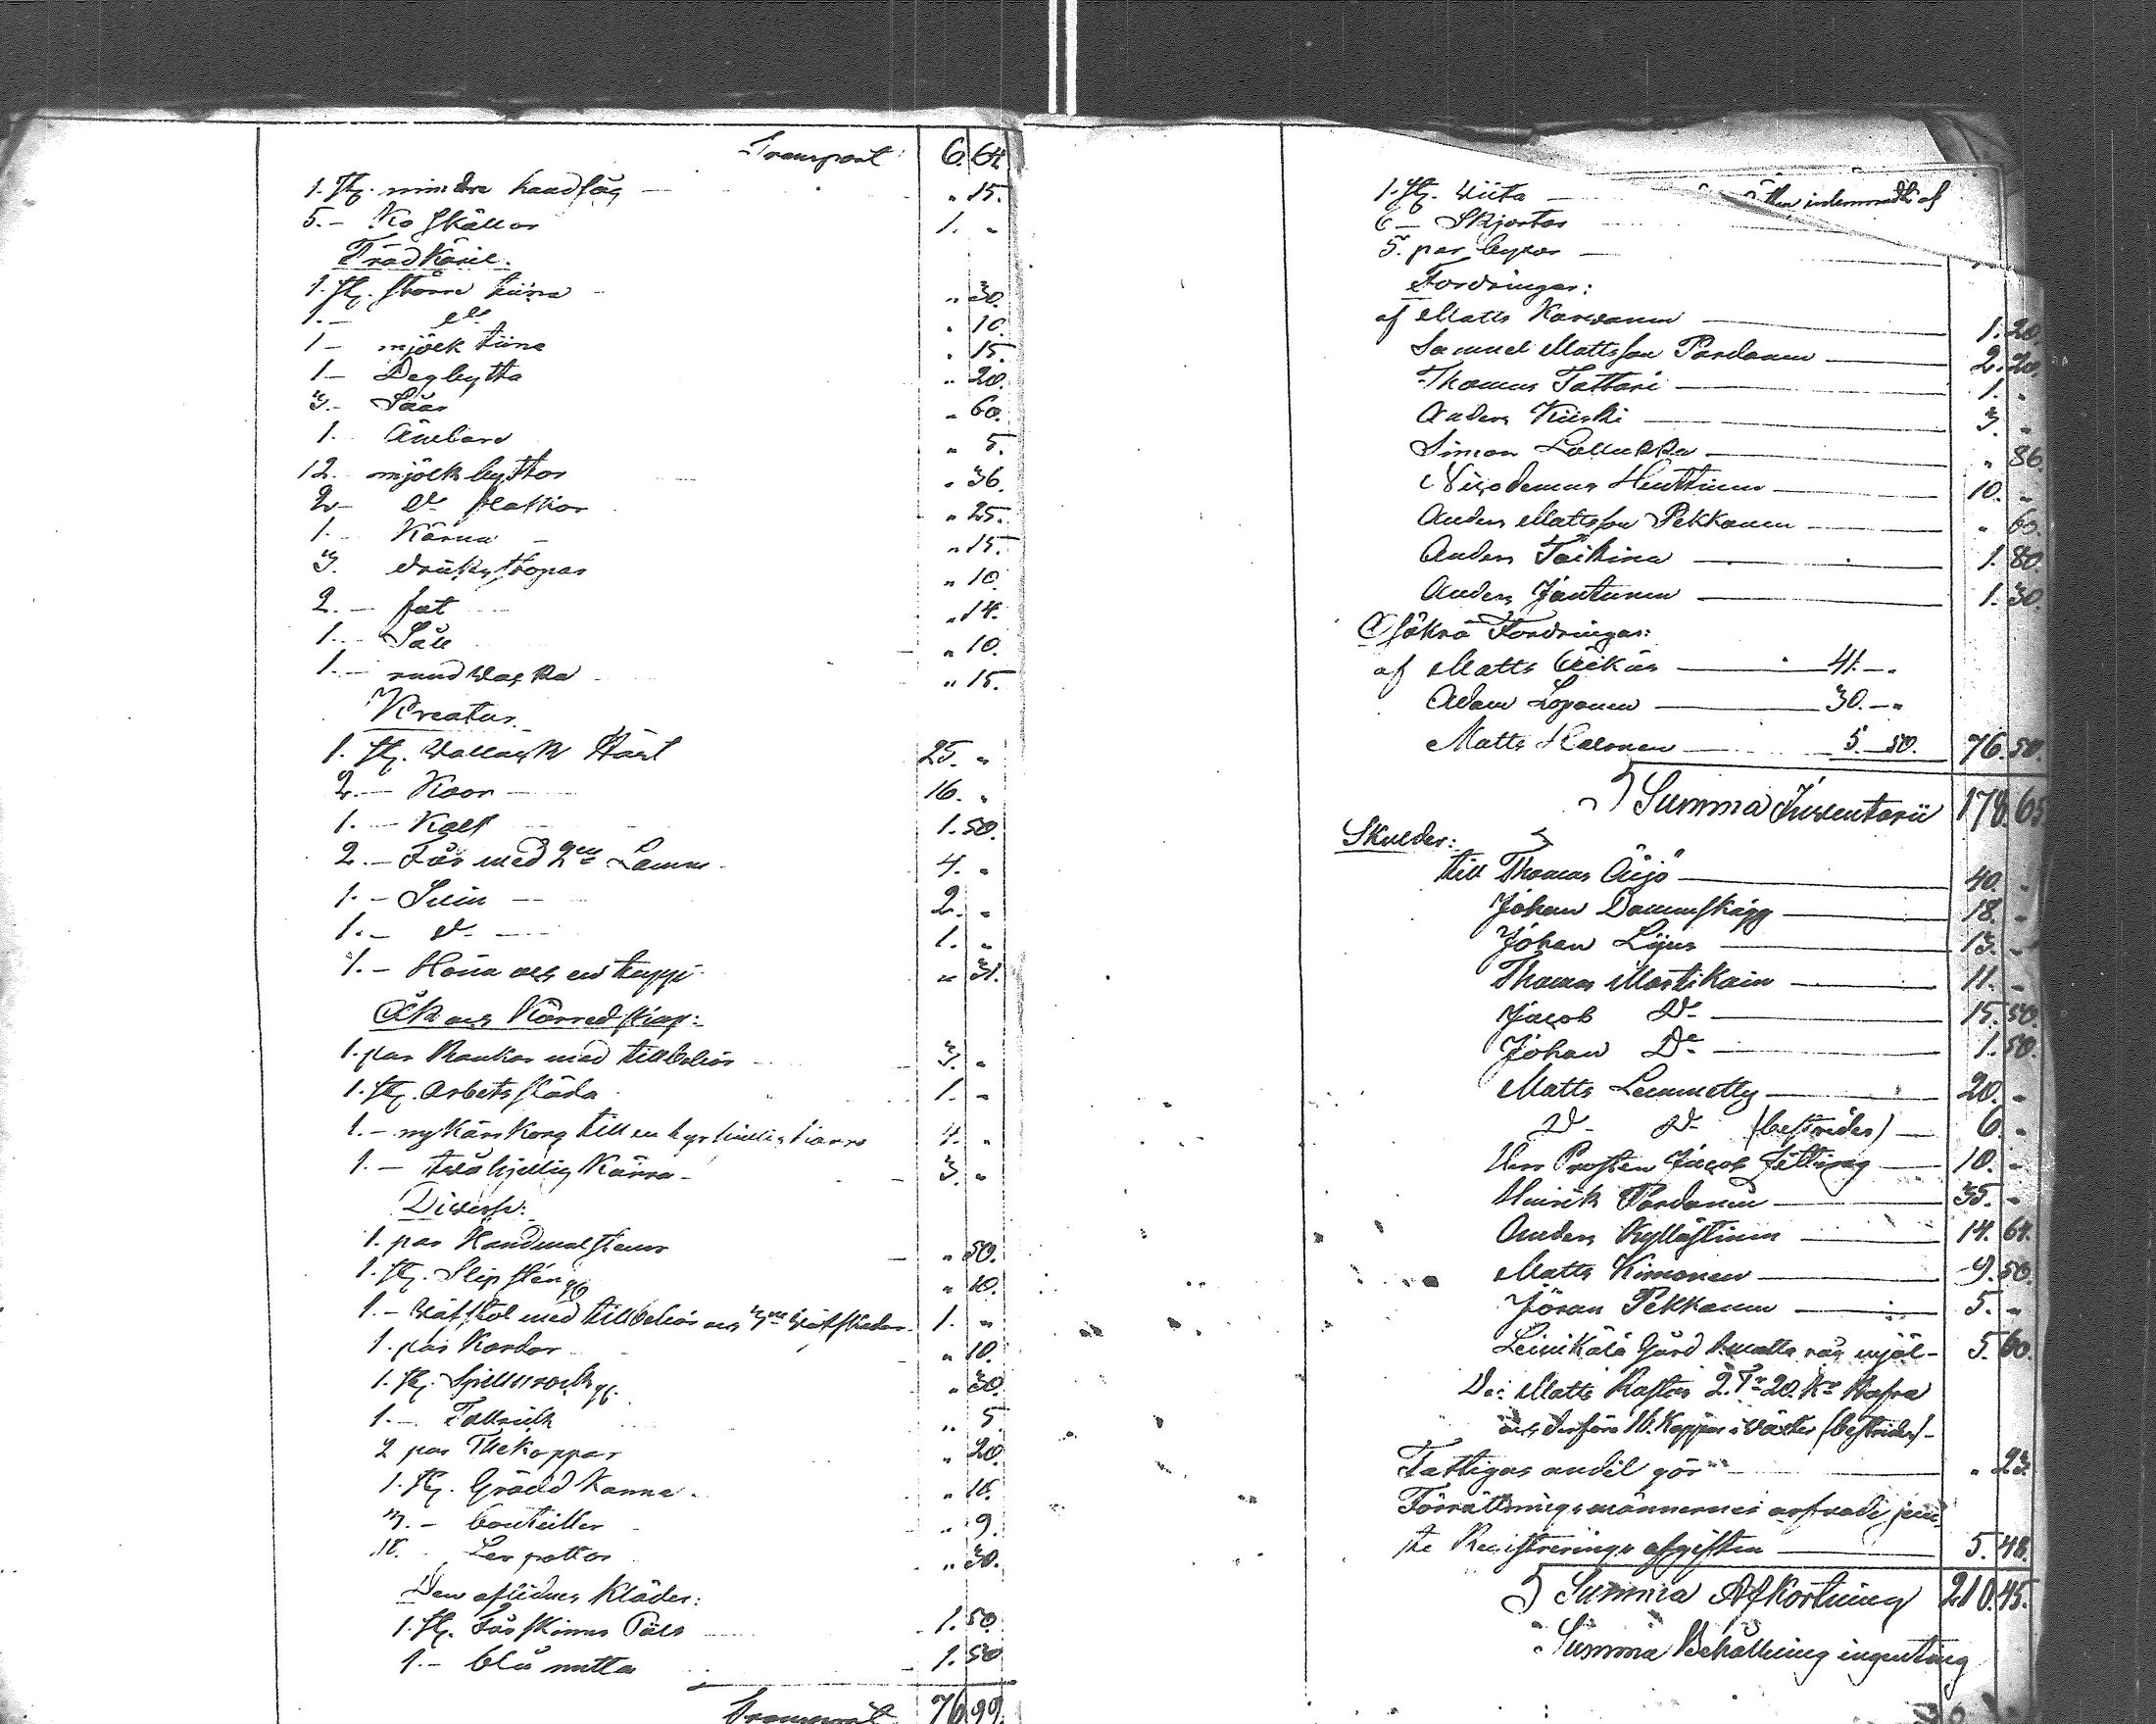 Transport 6. 64.
1. st. mindre handsåg " 15.
5. - Ko skällor 1. "
Trädkäril.
1. st. större tiina " 30.
1. - do " 10.
1 - mjölk tiina " 15.
1 - Degbytta " 20.
3. - Såar " 60.
1. Ämbare " 5.
12. mjölk byttor " 36.
2 - do flattior " 25.
1. - Kärna " 15.
3. dricks stopar " 10
2. - fat " 14.
1. - Såll " 10.
1. - rund vaska " 15.
Kreatur.
1. st. Wallack Häst 25. "
2. - Koor 16. "
1. - Kalf 1. 50.
2. - Får med 2ne Lamm 4. "
1. - Svin 2. "
1. - do 1. "
1. - Höna och en tupp " 31.
Åk och Körredskap:
1. par Kankor med tillbehör 3. "
1. st. Arbetssläda 1. "
1. - ny Kärrkorg till en tvåhjulig kärra 4. "
1. - twåhjulig Kärra 3. "
Diverse:
1. par Handmalstenar " 50.
1. st. Slipsten " 10.
1 - Väfstol med tillbehör och 3ne väfskedar 1. "
1. par Kardor " 10.
1. st. Spinnrock " 30.
1. - Tallrick " 5
2 par Thekoppar " 20.
1. st. Grädd Kanna " 10.
3. - bouteiller " 9.
10. Ler pottor " 30.
Den aflidnes Kläder:
1. st. Fårskinns Päls 1. 50.
1. - blå mutta 1. 50
Transport 76 99.
1. st. viita
6 - Skjortor
5. par byxor
Fordringar:
af Matts Karvanen 1. 20.
Samuel Mattsson Pardanen 2. 20.
Thomas Tattari 1. "
Anders Kiiski 3. "
Simon Lallukka " 86.
Nicodemus Huttunen 10. "
Anders Mattsson Pekkanen " 60.
Anders Täikinä 1. 80.
Anders Jantunen 1. 30.
Osäkra Fordringar:
af Matts 41. - "
Adam Loponen 30. - "
Matts Halonen 5. 50. 76. 50.
Summa Inventarii 178. 65
Skulder:
till Thomas Äijö 40. "
Johan Dammskägg 18. "
Johan Lijus 13. "
Thomas Martikain 11. "
Jacob Do 15. 50.
Johan Do 1. 50.
Matts Lemmetty 20. "
Do Do (bestrides) 6. "
Herr Prosten Jacob 10. "
Hinrik Pardanen 35. "
Anders Kylliäinen 14. 64.
Matts Kimonen 9. 50.
Jöran Pekkanen 5. "
Leinikälä Gård 1 matta råg mjöl - 5. 60.
Do Matts 2. Tr 20. Kr Hafra
och derföre 16. Kappar i växter (bestrides) -
Fattigas andel gör " 23.
Förrättningsmännernes arfvode jem-
te Registrerings afgiften 5. 48.
Summa Afkortning 210. 45.
Summa Behållning ingenting